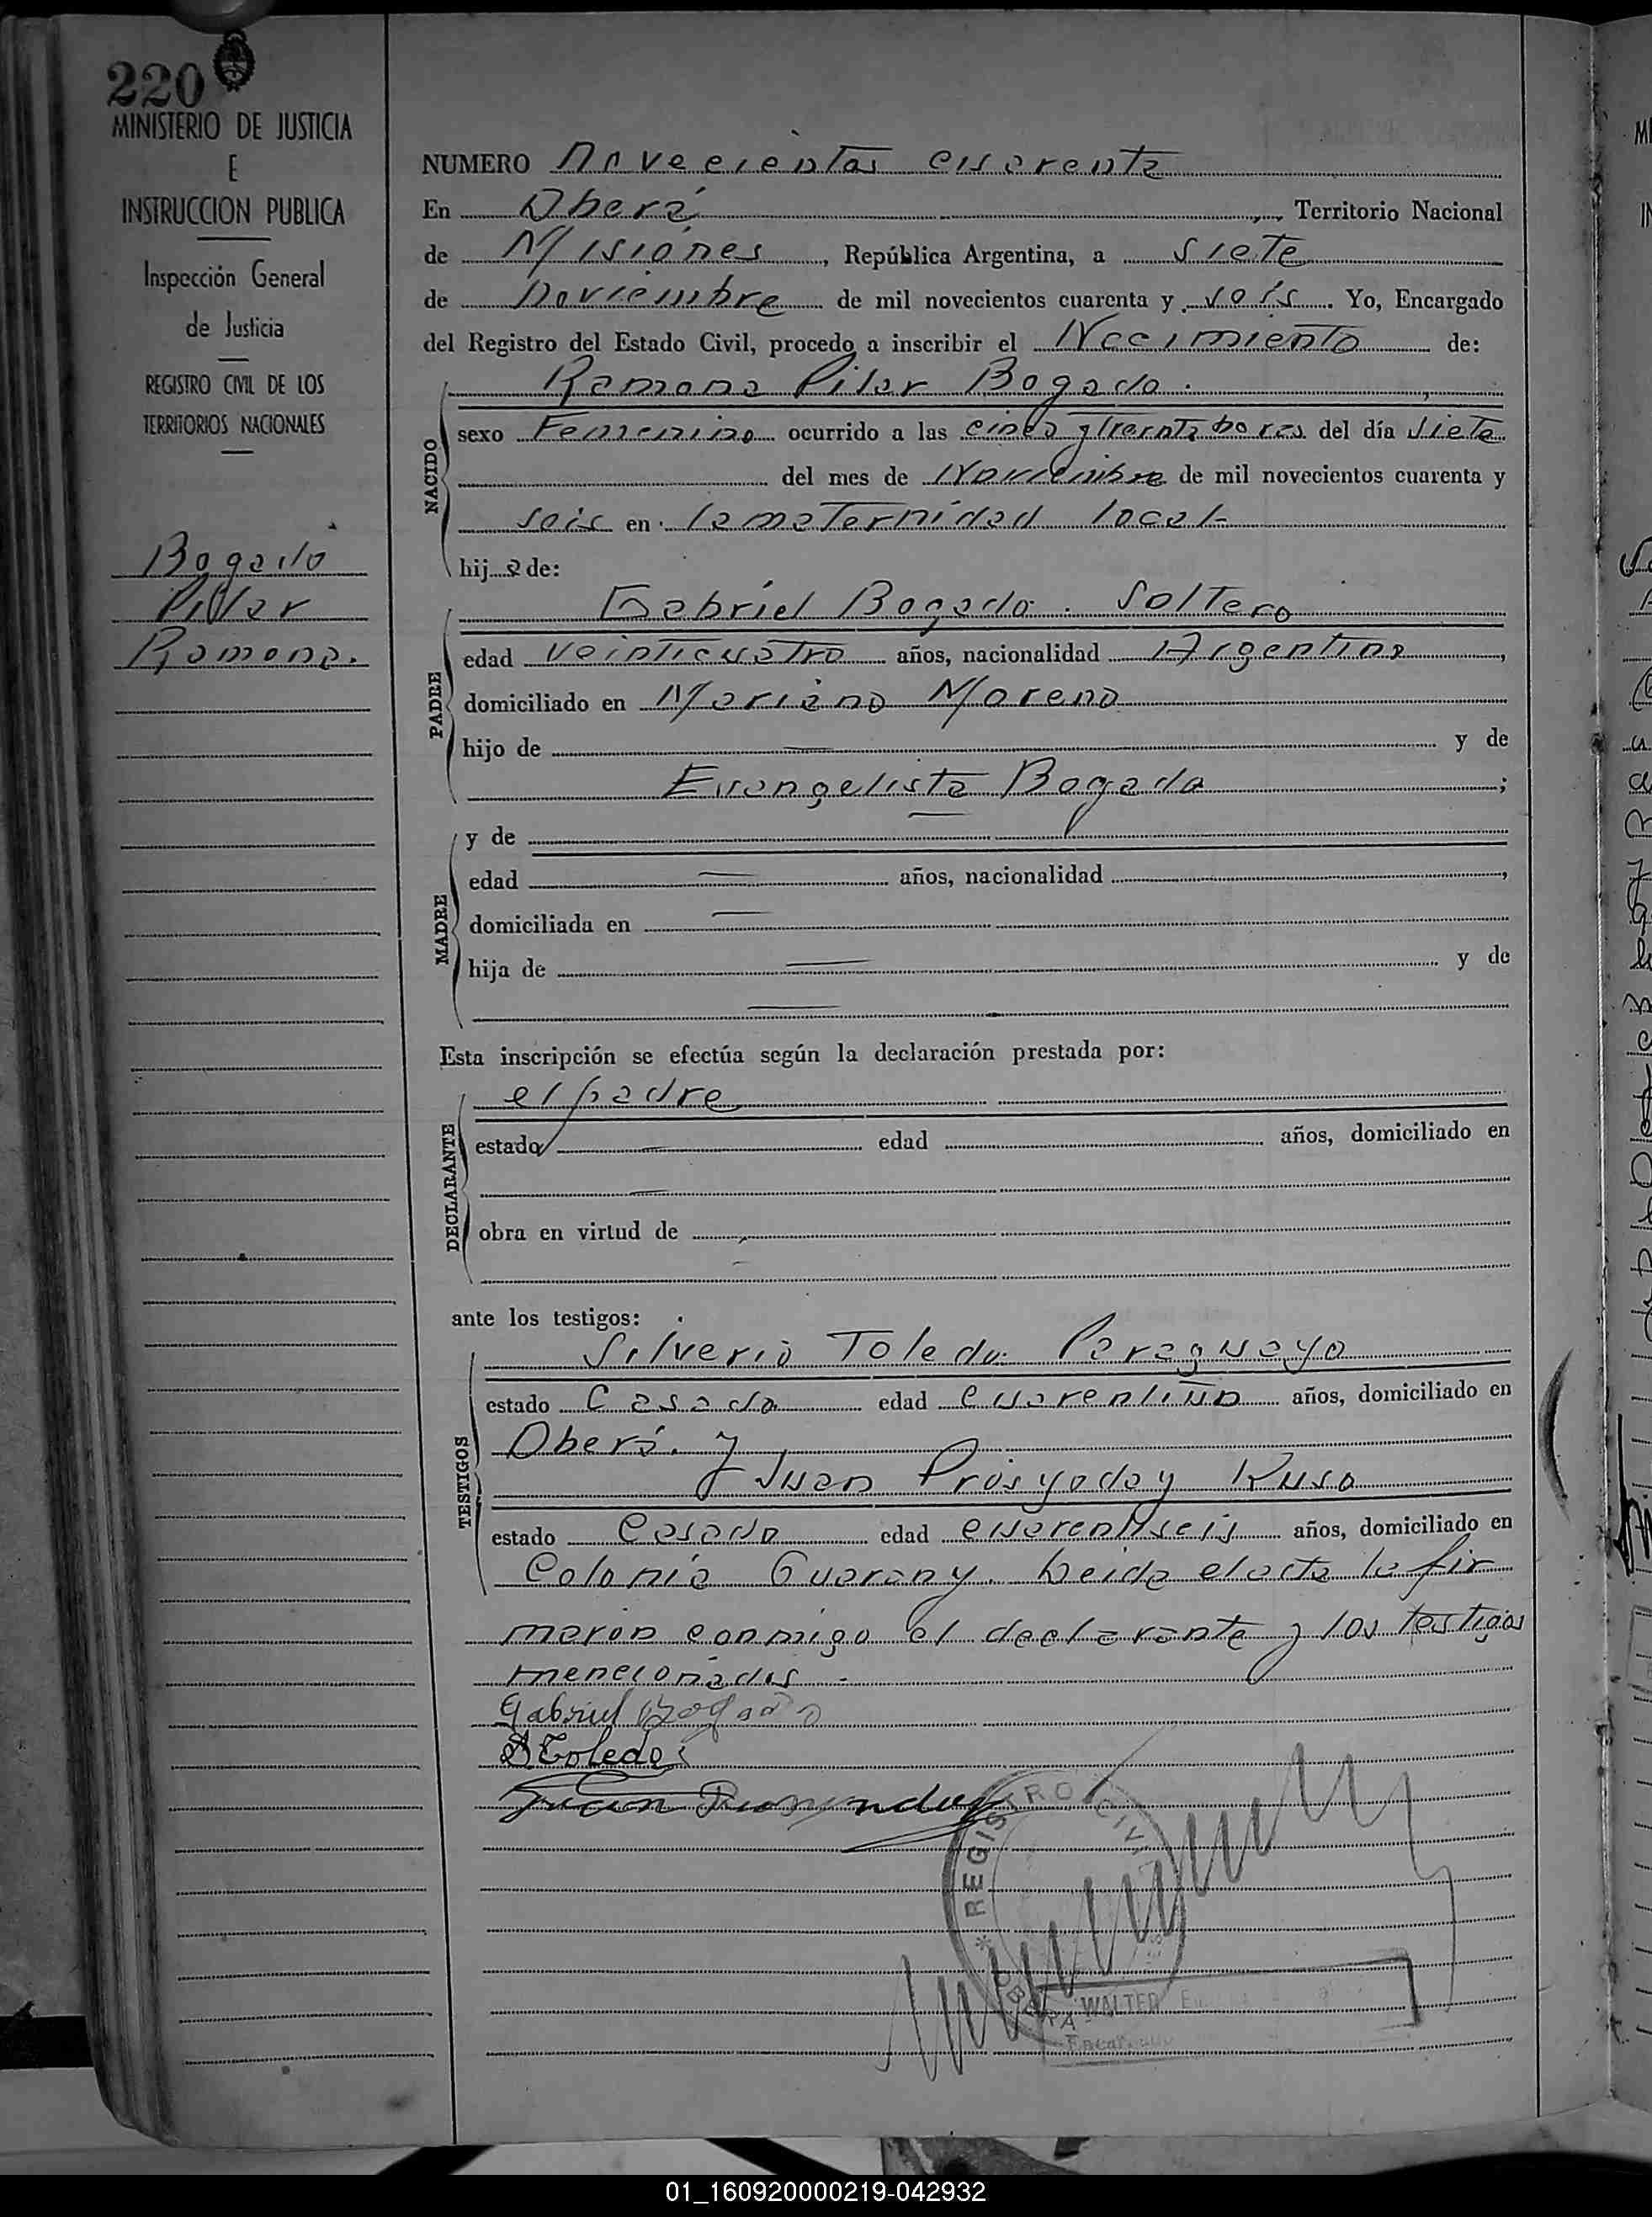 220
MINISTERIO DE JUSTICIA
E
INSTRUCCION PUBLICA
Inspección General
de Justicia
REGISTRO CIVIL DE LOS
TERRITORIOS NACIONALES
Bogado
Pilar
Ramona.
NUMERO Novecientos cuarenta
En Oberá, Territorio Nacional
de Misiones, República Argentina, a siete
de Noviembre de mil novecientos cuarenta y seis. Yo, Encargado
del Registro del Estado Civil, procedo a inscribir el Nacimiento de:
Ramona Pilar Bogado.
NACIDO
sexo Femenino ocurrido a las cinco y treinta horas del día siete
del mes de Noviembre de mil novecientos cuarenta y
seis en la maternidad local-
hija de:
PADRE
Gabriel Bogado. Soltero
edad veinticuatro años, nacionalidad Argentina,
domiciliado en Mariano Moreno
hijo de — y de
Evangelista Bogado;
MADRE
y de —
edad — años, nacionalidad ,
domiciliada en —
hija de — y de
—
Esta inscripción se efectúa según la declaración prestada por:
DECLARANTE
el padre
estado — edad años, domiciliado en
—
obra en virtud de
ante los testigos:
TESTIGOS
Silverio Toledo. Paraguayo
estado Casado edad cuarentiuno años, domiciliado en
Oberá. y
Juan Ruso
estado Casado edad cuarentiseis años, domiciliado en
Colonia Guarany. Leida el acta la fir
maron conmigo el declarante y los testigos
mencionados.
Gabriel Bogado
S Toledo
Juan
* REGISTRO CIVIL *
OBERA
WALTER
01_160920000219-042932